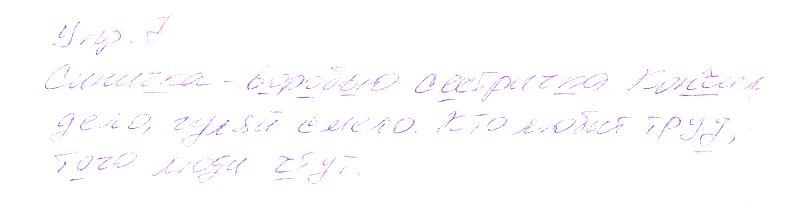 Упр. 7
Синичка - воробью сестричка. Кончил
дело, гуляй смело. Кто любит труд,
того люди чтут.